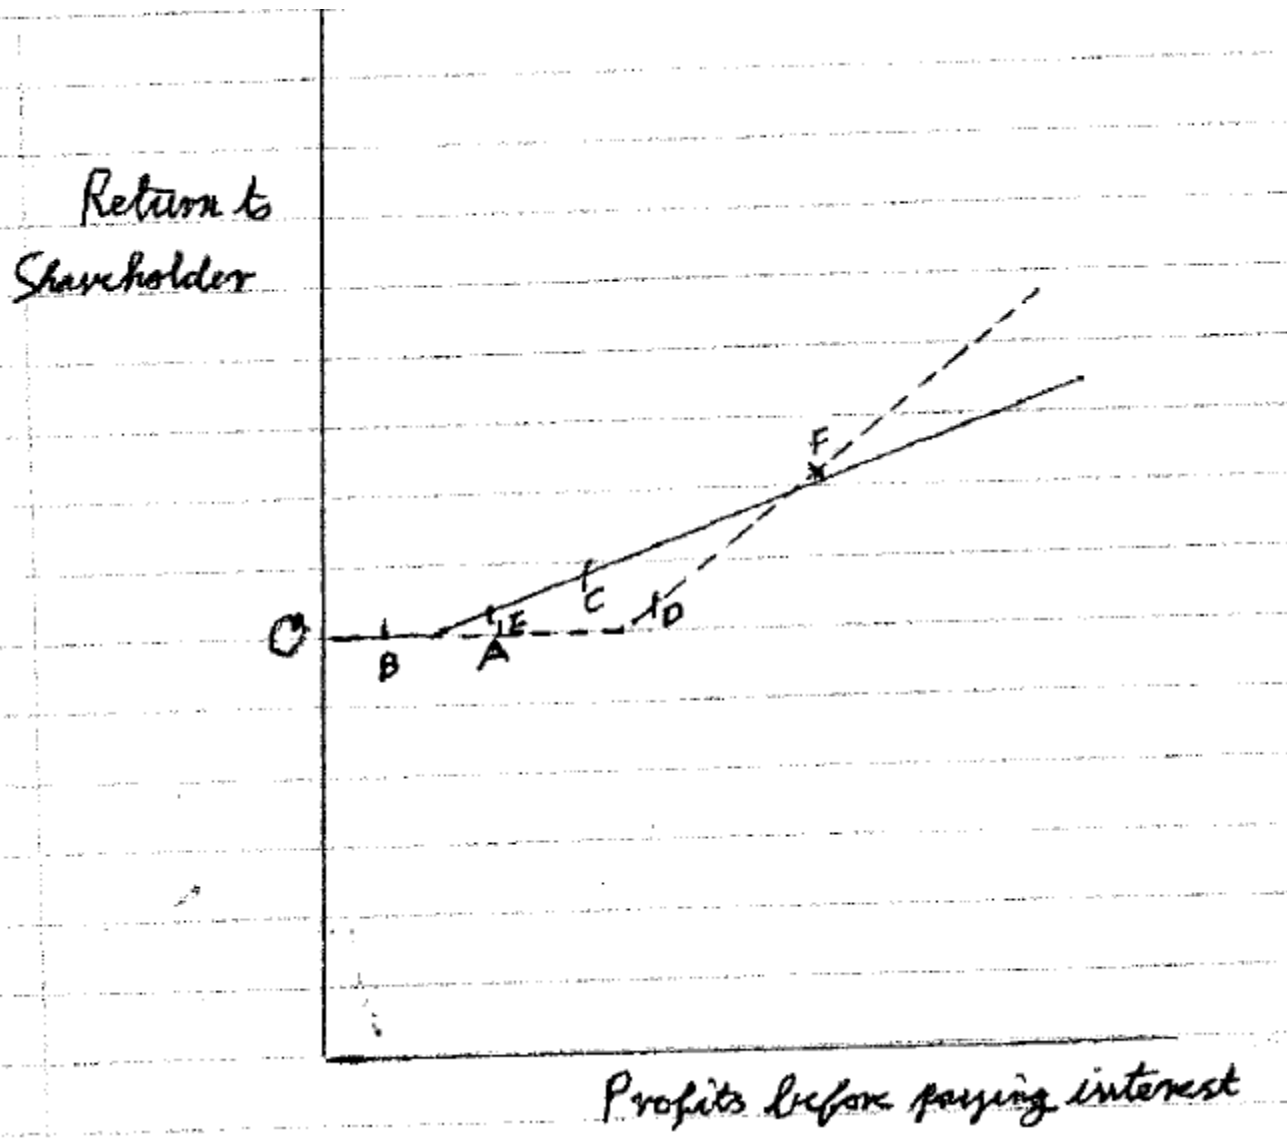 Return to
Shareholder
F
C
D
E
O
B
A
Profits before paying interest